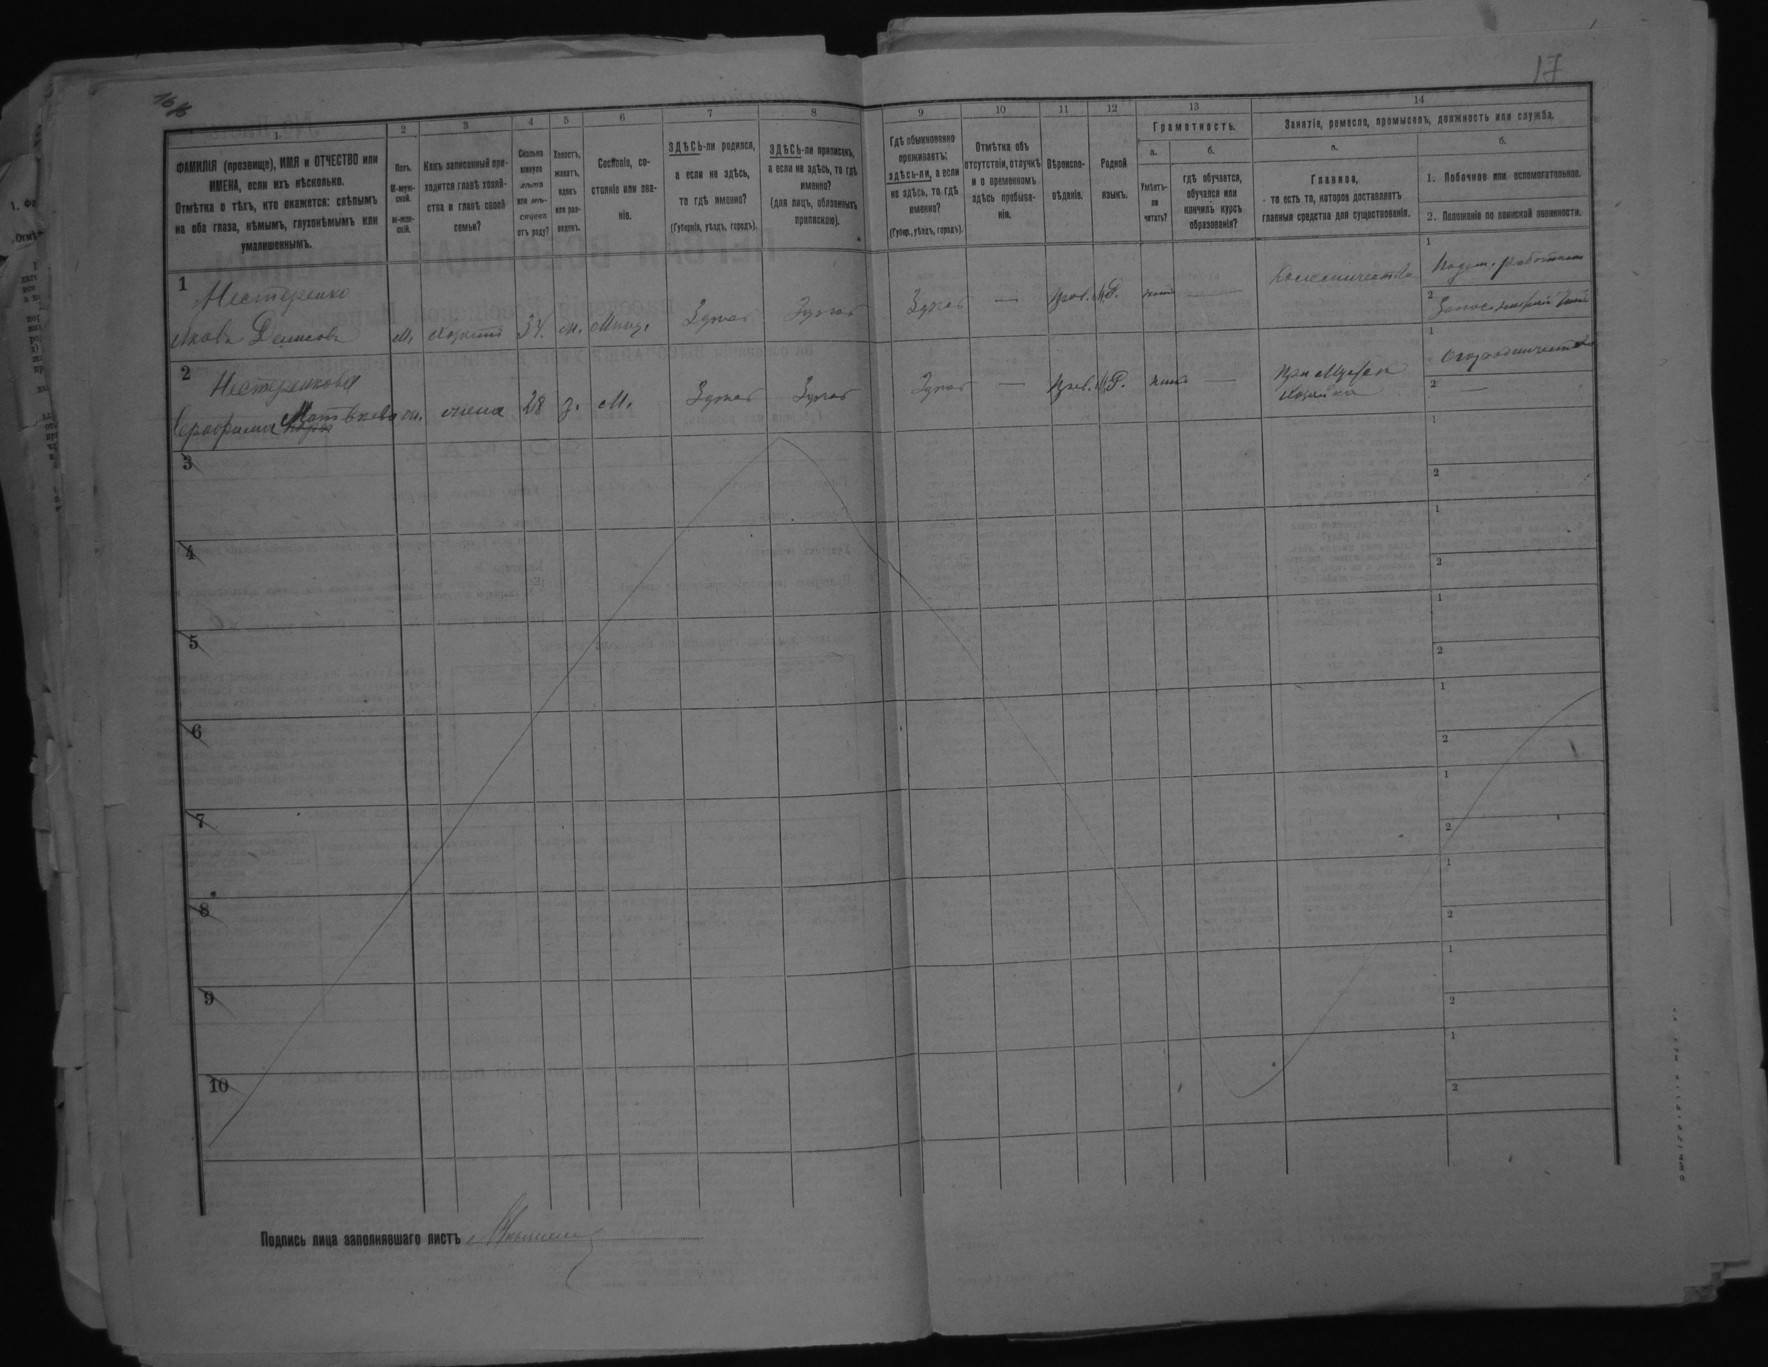 16
17
1 2 3 4 5 6 7 8 9 10 11 12 13 14
ФАМИЛІЯ (прозвище), ИМЯ и ОТЧЕСТВО или
ИМЕНА, если ихъ нѣсколько.
Отмѣтка о тѣхъ, кто окажется: слѣпымъ
на оба глаза, нѣмымъ, глухонѣмымъ или
умалишеннымъ.
Полъ.
М-муж-
ской.
Ж-жен-
скій.
Какъ записанный при-
ходится главѣ хозяй-
ства и главѣ своей
семьи?
Сколько
минуло
лѣтъ
или мѣ-
сяцевъ
отъ роду?
Холостъ,
женатъ,
вдовъ
или раз-
веденъ.
Сословіе, со-
стояніе или зва-
ніе.
ЗДѢСЬ-ли родился,
а если не здѣсь,
то гдѣ именно?
(Губернія, уѣздъ, городъ).
ЗДѢСЬ-ли приписанъ,
а если не здѣсь, то гдѣ
именно?
(для лицъ, обязанныхъ
припискою).
Гдѣ обыкновенно
проживаетъ:
здѣсь-ли, а если
не здѣсь, то гдѣ
именно?
(Губер., уѣздъ, городъ).
Отмѣтка объ
отсутствіи, отлучкѣ
и о временномъ
здѣсь пребыва-
ніи.
Вѣроиспо-
вѣданіе.
Родной
языкъ.
Грамотность.
а.
Умѣетъ-
ли
читать?
б.
гдѣ обучается,
обучался или
кончилъ курсъ
образованія?
Занятіе, ремесло, промыселъ, должность или служба.
а.
Главное,
то есть то, которое доставляетъ
главныя средства для существованія.
б.
1. Побочное или вспомогательное.
2. Положеніе по воинской повинности.
1
Нестеренко
Яковъ Денисовъ
М. хозяинъ 34. ж. Мѣщ. Здѣсь Здѣсь Здѣсь — Прав. М.Р. —
1
2
2
Нестеренкова
Серафима Матвѣева
ж. жена 28 з. М. Здѣсь Здѣсь Здѣсь — Прав. М.Р. —
При мужѣ
хозяйка
1 Огородничество
2 —
3
1
2
4
1
2
5
1
2
6
1
2
7
1
2
8
1
2
9
1
2
10
1
2
Подпись лица заполнявшаго листъ